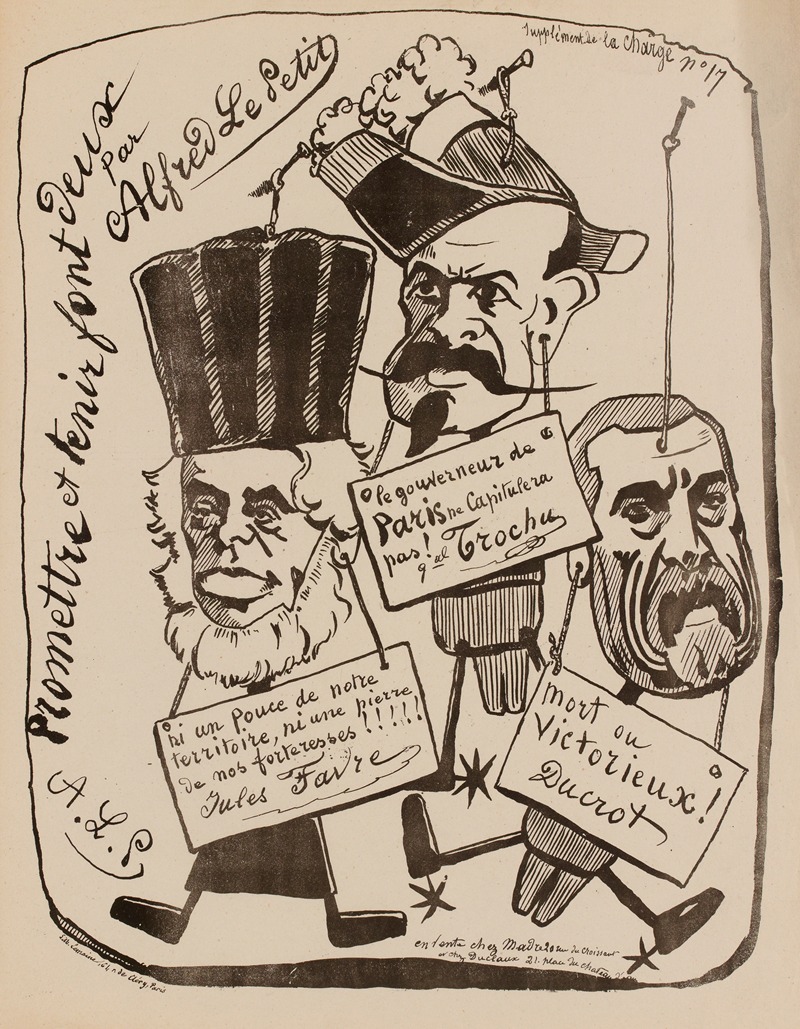 Supplément de la Charge nº 17
Promettre et tenir font deux
par
Alfred Le Petit
le gouverneur de
Paris ne Capitulera
pas!
gal Trochu
ni un pouce de notre
territoire, ni une pierre
de nos forteresses !!!!!!
Jules Favre
mort ou
Victorieux!
Ducrot
en vente chez Madre 20 rue du Croissant
et chez Duclaux 21. place du chateau d'eau
Paris